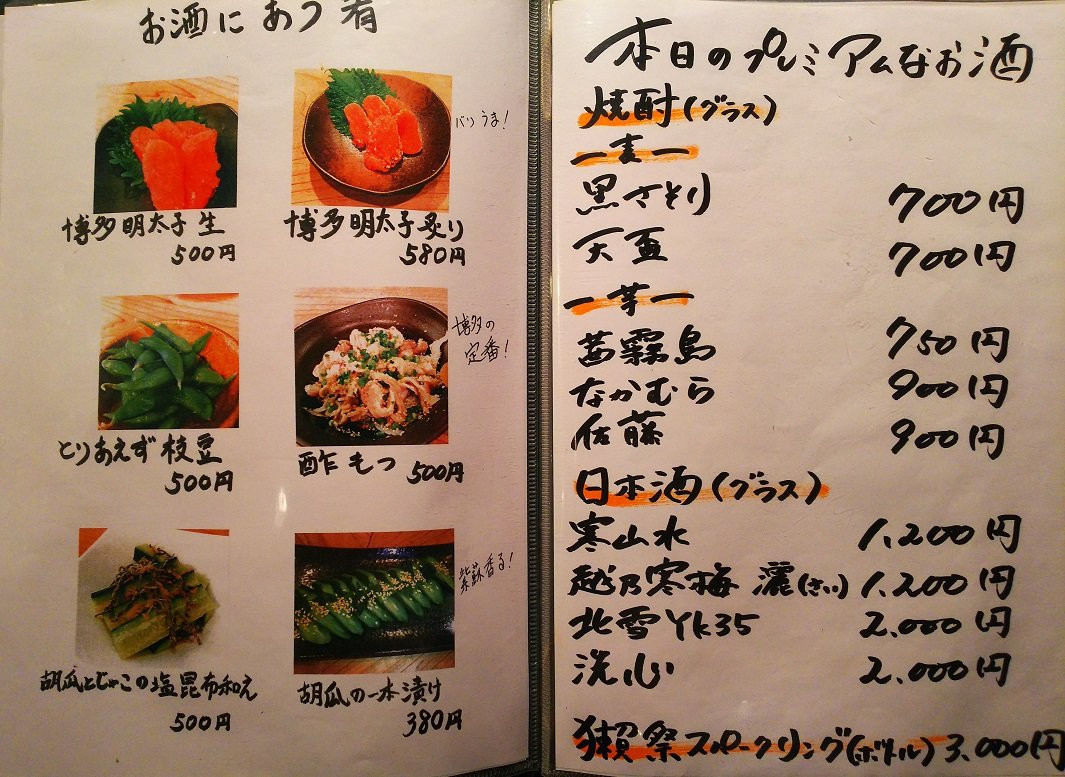 お酒にあう肴
バリうま!
博多明太子生
500円
博多明太子炙り
580円
博多の
定番!
とりあえず枝豆
500円
酢もつ 500円
紫蘇香る!
胡瓜とじゃこの塩昆布和え
500円
胡瓜の一本漬け
380円
本日のプレミアムなお酒
焼酎(グラス)
ー麦ー
黒さそり 700円
天盃 700円
ー芋ー
茜霧島 750円
なかむら 900円
佐藤 900円
日本酒(グラス)
寒山水 1,200円
越乃寒梅 灑(さい) 1,200円
北雪YK35 2,000円
洗心 2,000円
獺祭スパークリング(ボトル) 3,000円